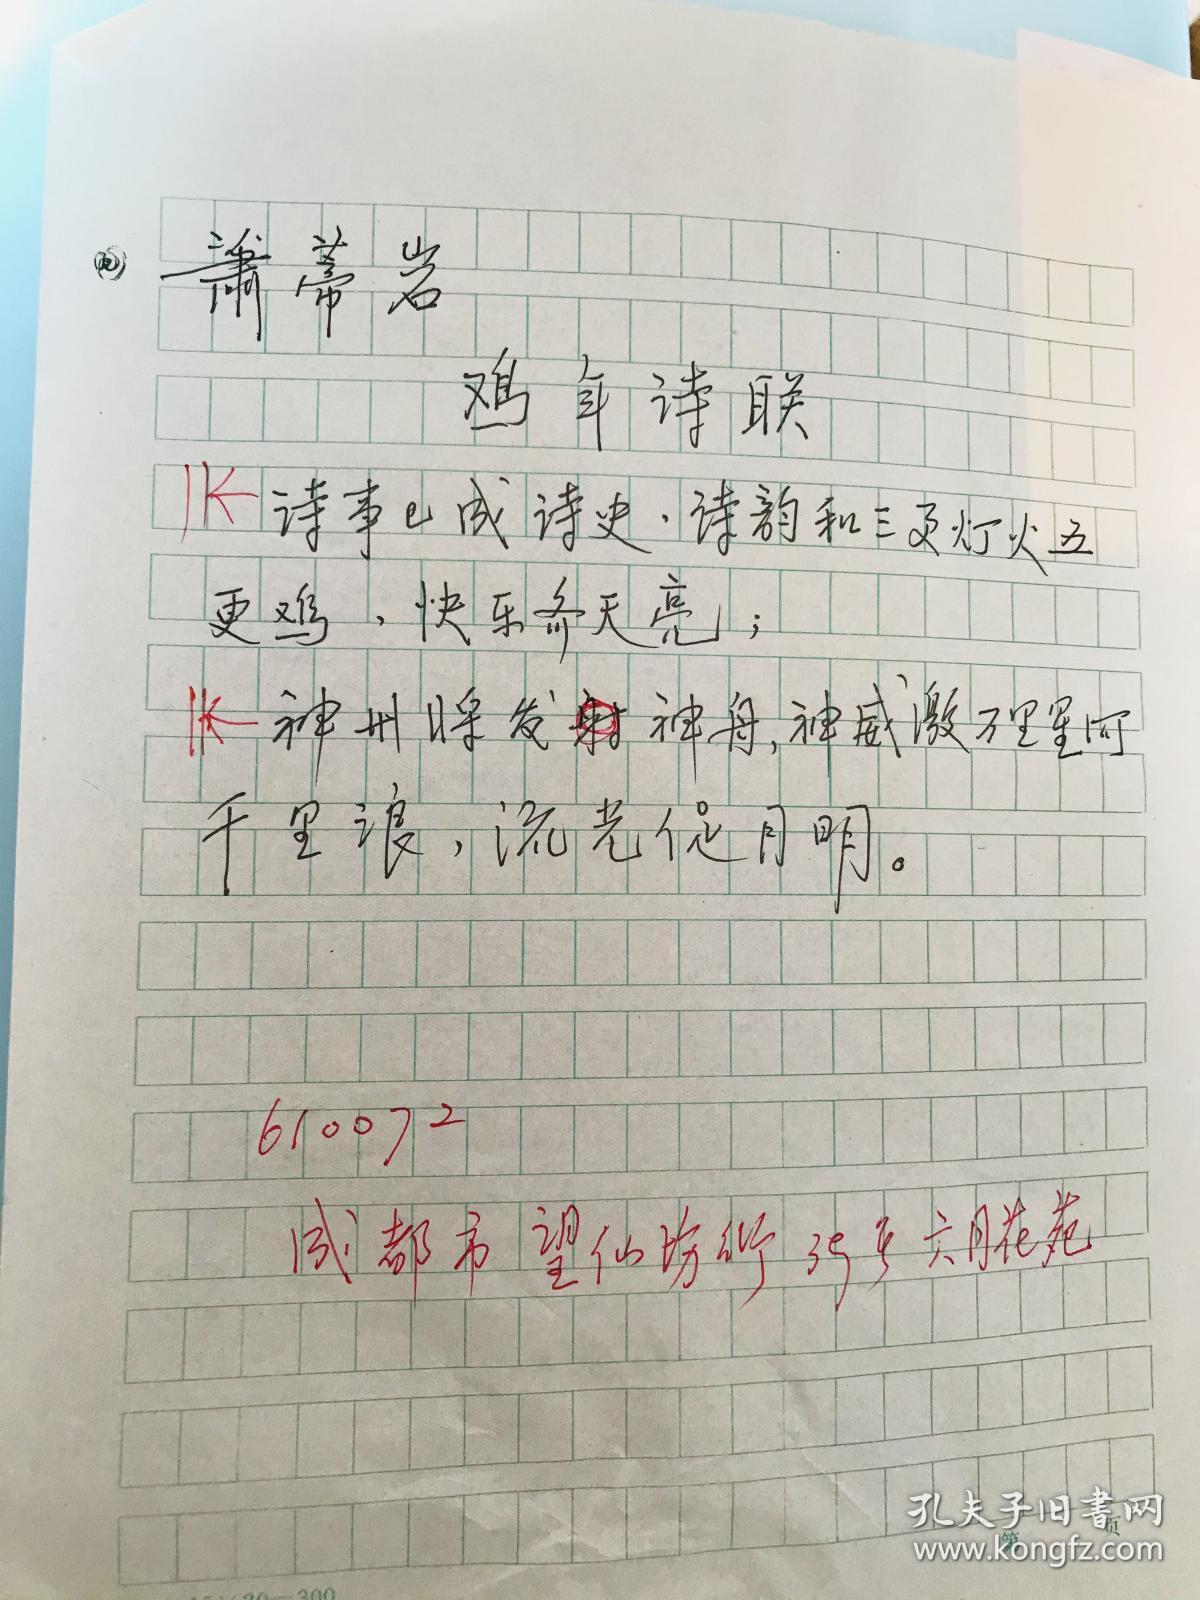 萧蒂岩
鸡年诗联
诗事已成诗史，诗韵和三更灯火五
更鸡，快乐齐天亮；
神州将发射神舟，神威激万里星河
千里浪，流光促月明。
610072
成都市望仙场街35号六月花苑
孔夫子旧書网
www.kongfz.com
第 页
15×20=300